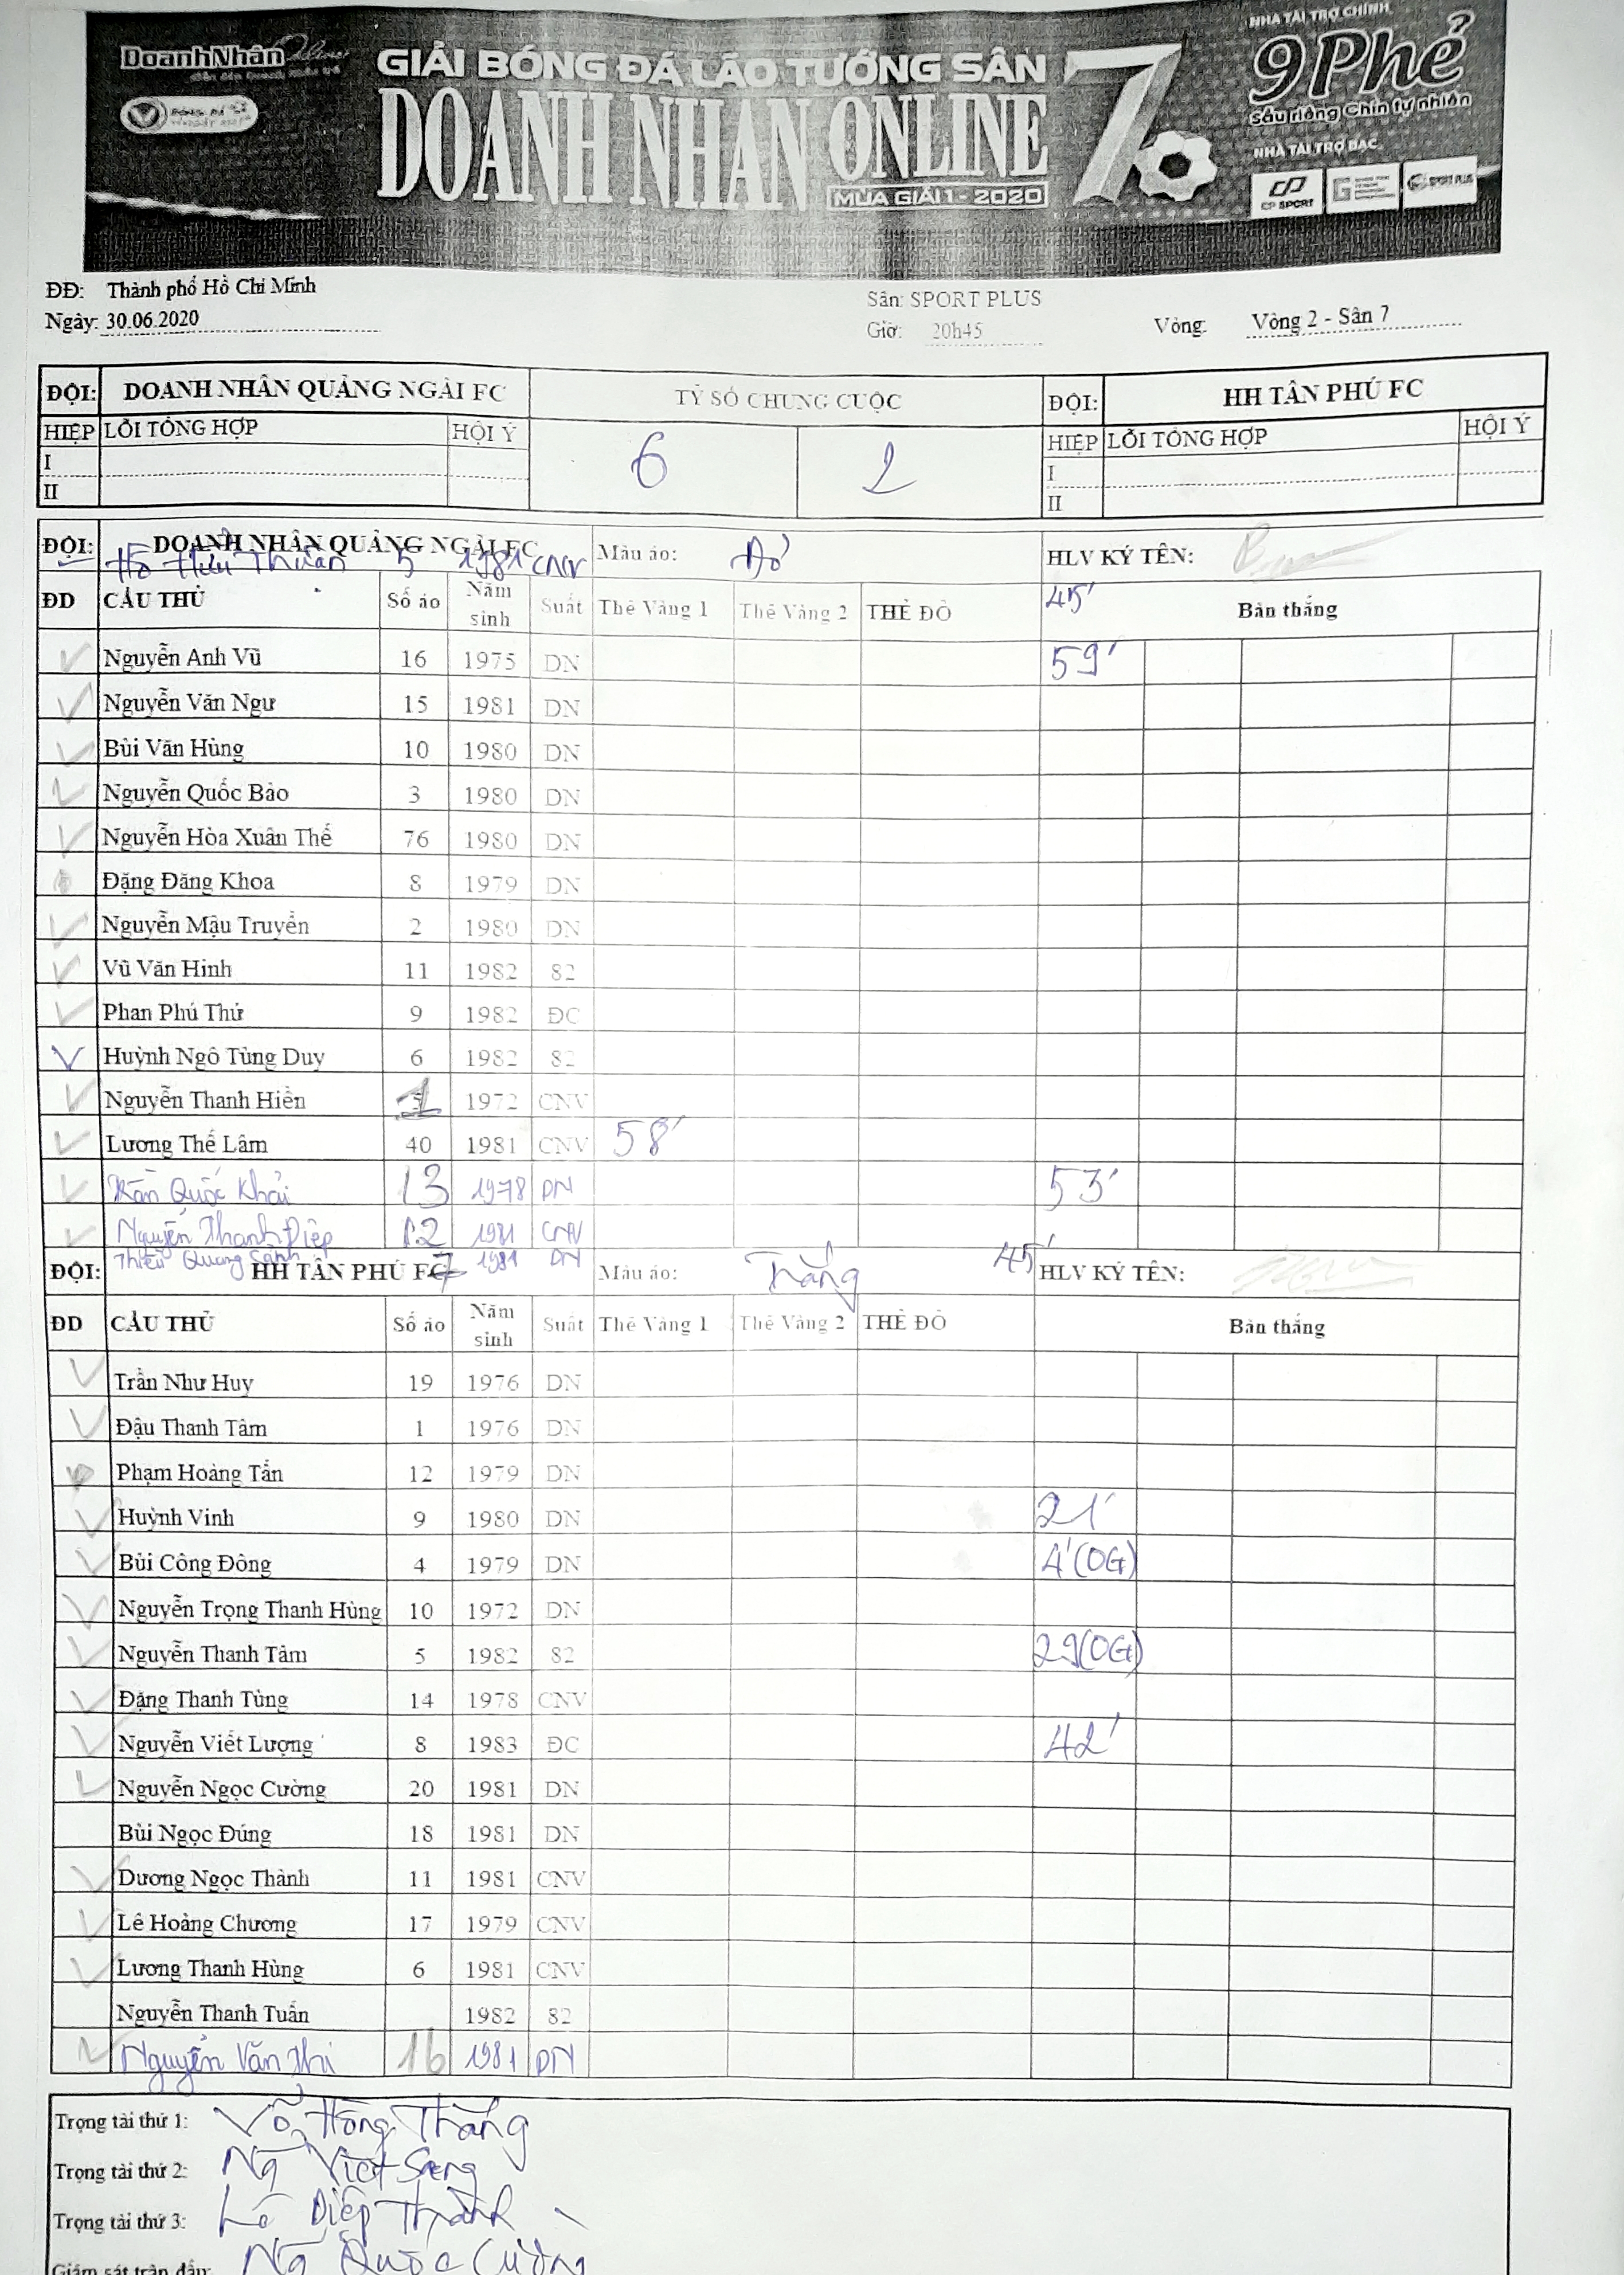 DoanhNhân Online
NHÀ TÀI TRỢ CHÍNH
GIẢI BÓNG ĐÁ LÃO TƯỚNG SÂN 7
9 Phẻ
Sầu riêng Chín tự nhiên
DOANH NHÂN ONLINE
MÙA GIẢI 1 - 2020
NHÀ TÀI TRỢ BẠC
CP SPORT
SPORT PLUS
ĐĐ: Thành phố Hồ Chí Minh
Ngày: 30.06.2020
Sân: SPORT PLUS
Giờ: 20h45
Vòng: Vòng 2 - Sân 7
ĐỘI: DOANH NHÂN QUẢNG NGÃI FC TỶ SỐ CHUNG CUỘC ĐỘI: HH TÂN PHÚ FC
HIỆP LỖI TỔNG HỢP HỘI Ý 6 2 HIỆP LỖI TỔNG HỢP HỘI Ý
I I
II II
ĐỘI: DOANH NHÂN QUẢNG NGÃI FC Màu áo: Đỏ HLV KÝ TÊN:
Hồ Hữu Thuần 5 1981 CNV 45'
ĐD CẦU THỦ Số áo Năm sinh Suất Thẻ Vàng 1 Thẻ Vàng 2 THẺ ĐỎ Bàn thắng
Nguyễn Anh Vũ 16 1975 DN 59'
Nguyễn Văn Ngư 15 1981 DN
Bùi Văn Hùng 10 1980 DN
Nguyễn Quốc Bảo 3 1980 DN
Nguyễn Hòa Xuân Thế 76 1980 DN
Đặng Đăng Khoa 8 1979 DN
Nguyễn Mậu Truyền 2 1980 DN
Vũ Văn Hinh 11 1982 82
Phan Phú Thứ 9 1982 ĐC
Huỳnh Ngô Tùng Duy 6 1982 82
Nguyễn Thanh Hiền 1 1972 CNV
Lương Thế Lâm 40 1981 CNV 58'
Trần Quốc Khải 13 1978 DN 53'
Nguyễn Thanh Điệp 12 1981 CNV
Thiều Quang Sành 7 1981 DN 45'
ĐỘI: HH TÂN PHÚ FC Màu áo: Trắng HLV KÝ TÊN:
ĐD CẦU THỦ Số áo Năm sinh Suất Thẻ Vàng 1 Thẻ Vàng 2 THẺ ĐỎ Bàn thắng
Trần Như Huy 19 1976 DN
Đậu Thanh Tâm 1 1976 DN
Phạm Hoàng Tấn 12 1979 DN
Huỳnh Vinh 9 1980 DN 21'
Bùi Công Đông 4 1979 DN 4'(OG)
Nguyễn Trọng Thanh Hùng 10 1972 DN
Nguyễn Thanh Tâm 5 1982 82 29(OG)
Đặng Thanh Tùng 14 1978 CNV
Nguyễn Viết Lượng 8 1983 ĐC 42'
Nguyễn Ngọc Cường 20 1981 DN
Bùi Ngọc Đúng 18 1981 DN
Dương Ngọc Thành 11 1981 CNV
Lê Hoàng Chương 17 1979 CNV
Lương Thanh Hùng 6 1981 CNV
Nguyễn Thanh Tuấn 1982 82
Nguyễn Văn Thi 16 1981 DN
Trọng tài thứ 1: Võ Hồng Thắng
Trọng tài thứ 2: Ng Việt Sang
Trọng tài thứ 3: Lê Diệp Thành
Giám sát trận đấu: Ng Quốc Cường